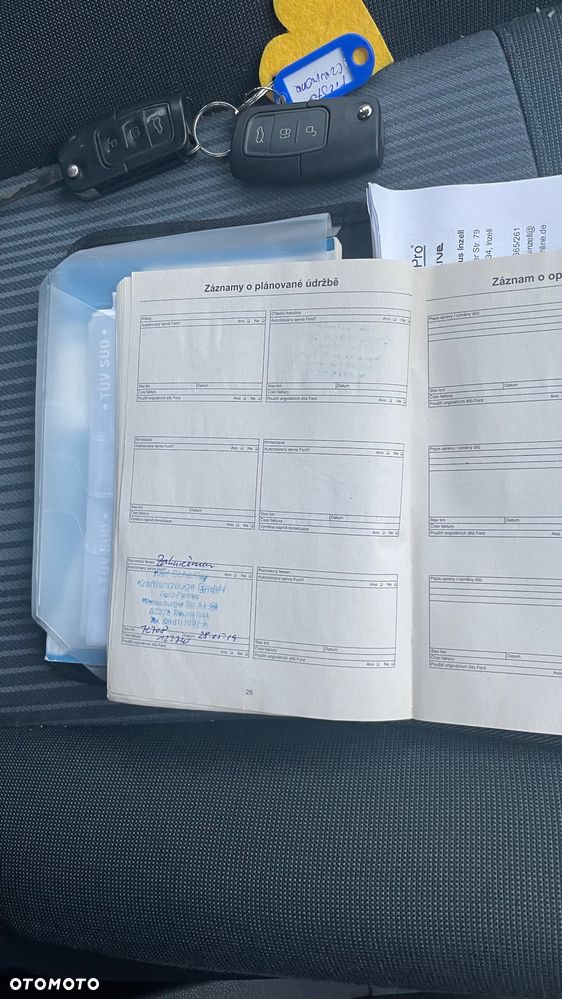 FIESTA
CZERWONA
Pro
us Inzell
er Str. 79
34, Inzell
565/261
nzell@
nline.de
TÜV SÜD
TÜV SÜD
Záznamy o plánované údržbě
Airbag
Autorizovaný servis Ford? Ano Ne
Stav km Datum
Číslo faktury
Použití originálních dílů Ford Ano Ne
Chladicí kapalina
Autorizovaný servis Ford? Ano Ne
Stav km Datum
Číslo faktury
Použití originálních dílů Ford Ano Ne
Klimatizace
Autorizovaný servis Ford? Ano Ne
Stav km Datum
Číslo faktury
Výměna náplně klimatizace Ano Ne
Klimatizace
Autorizovaný servis Ford? Ano Ne
Stav km Datum
Číslo faktury
Výměna náplně klimatizace Ano Ne
Rozvodový řemen Zahnriemen
Autorizovaný servis Ford? Ano Ne
Kraftfahrzeuge GmbH
Ford-Partner
83278 Traunstein
Stav km Datum 28-05-19
Číslo faktury
Použití originálních dílů Ford Ano Ne
Rozvodový řemen
Autorizovaný servis Ford? Ano Ne
Stav km Datum
Číslo faktury
Použití originálních dílů Ford Ano Ne
26
Záznam o op
Popis opravy / výměny dílů
Stav km Datum
Číslo faktury
Použití originálních dílů Ford
Popis opravy / výměny dílů
Stav km Datum
Číslo faktury
Použití originálních dílů Ford Ano
Popis opravy / výměny dílů
Stav km Datum
Číslo faktury
Použití originálních dílů Ford Ano
OTOMOTO